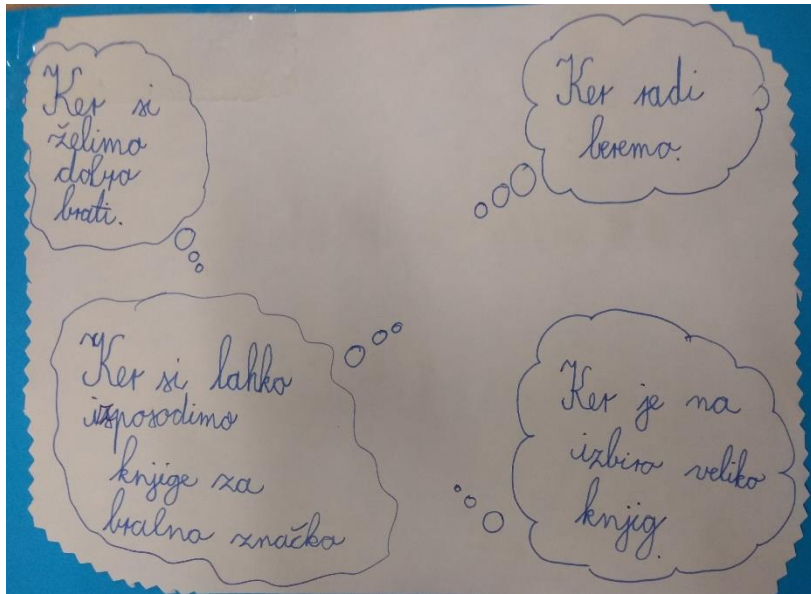 Ker si
želimo
dobro
brati.
Ker radi
beremo.
Ker si lahko
izposodimo
knjige za
bralno značko
Ker je na
izbiro veliko
knjig.